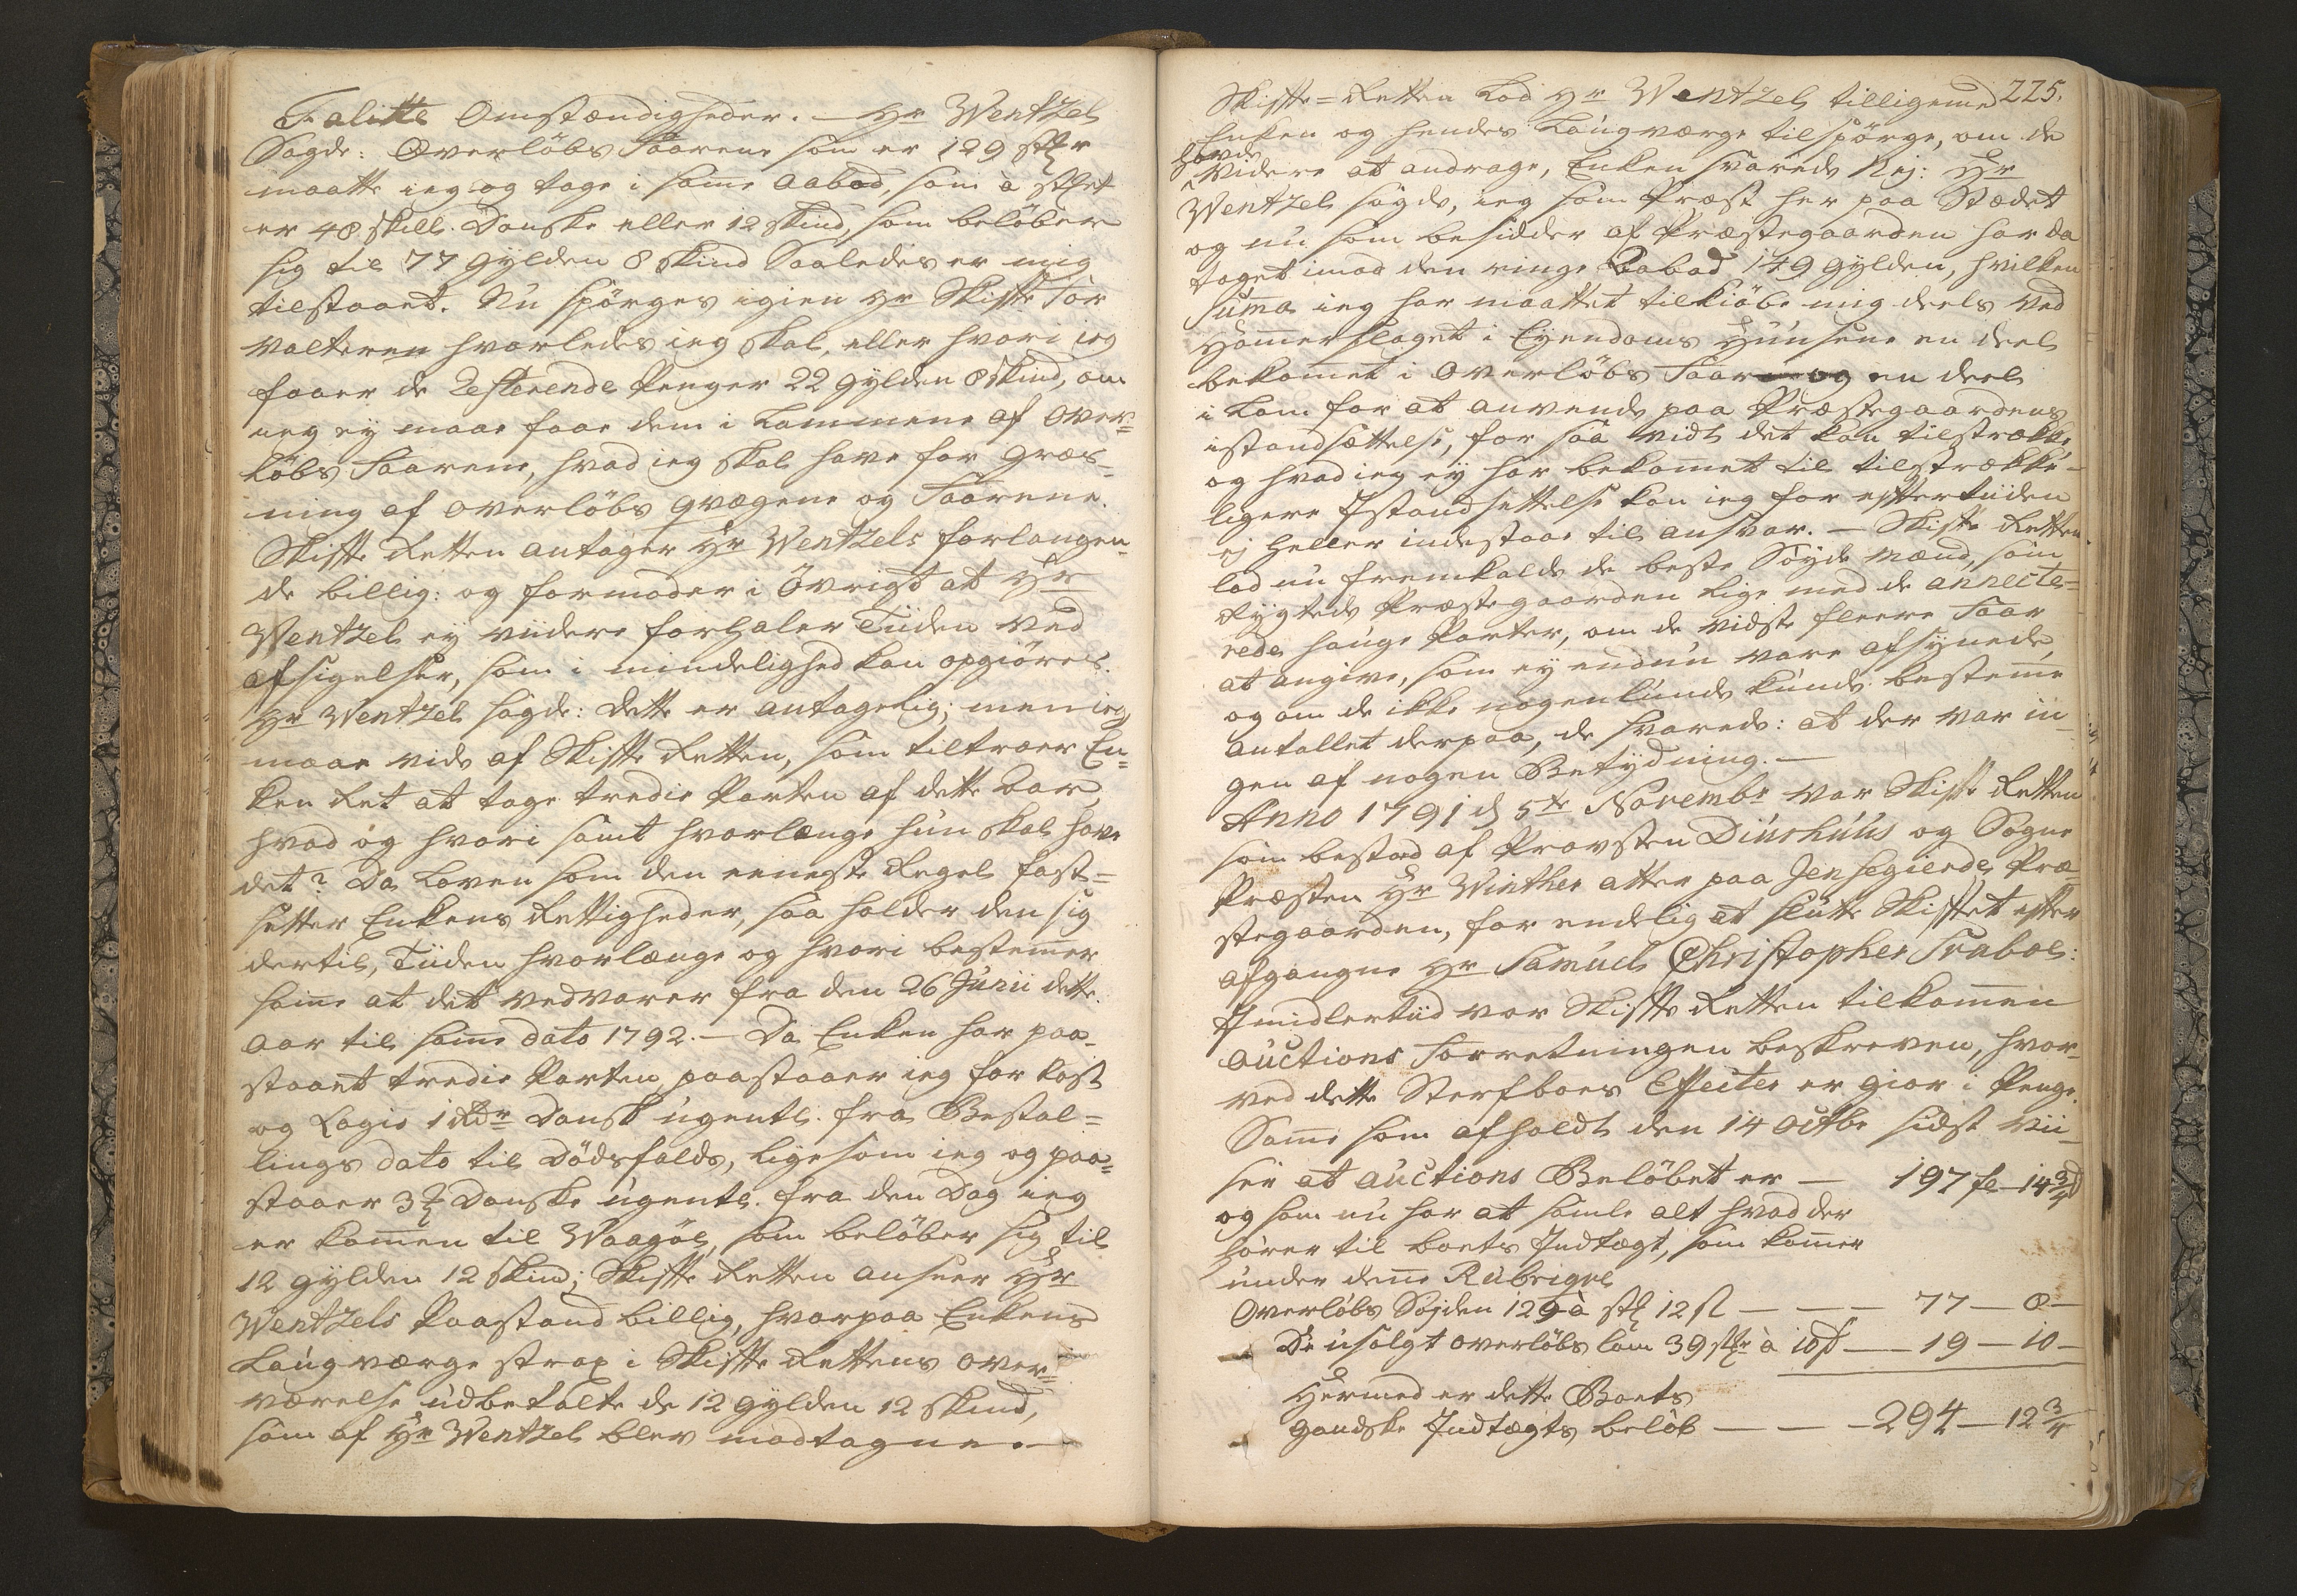 Falitte Omstændigheder. — Hr Wentzel
Sagde: Overlöbs Faarene som er 129 stkr
maatte ieg og tage i samme Aabod, som à stket
er 48 skill. Danske eller 12 skind, som belöber
sig til 77 Gylden 8 skind Saaledes er mig
tilstaaet. Nu spörges igien Hr Skifte For
valteren hvorledes ieg skal, eller hvori ieg
faaer de Resterende Penger 22 Gylden 8 skind, om
ieg ey maae faae dem i Lammene af Over=
löbs Faarene, hvad ieg skal have for Græs=
ning af Overlöbs Qvægene og Faarene.
Skifte Retten antager Hr Wentzels forlangen=
de billig: og formoder i övrigt at Hr
Wentzel ey viidere forhaler Tiiden ved
afsigelser, som i mindelighed kan opgiöres.
Hr Wentzel sagde: dette er antagelig; men ieg
maae vide af Skifte Retten, som tiltroer En=
ken Ret at tage tredie Parten af dette Aar,
hvad og hvori samt hvorlænge hun skal have
det? Da Loven som den eeneste Regel fast=
sætter Enkens Rettigheder, saa holder den sig
dertil, Tiiden hvorlænge og hvori bestemmer
samme at det vedvarer fra den 26 Junii dette
Aar til samme dato 1792. — Da Enken har paa=
staaet tredie Parten, paastaaer ieg for kost
og Logis 1 Rdr Dansk ugentl. fra Bestal=
lings dato til Dödsfalds, ligesom ieg og paa=
staaer 3 ℔ Danske ugentl. fra den Dag ieg
er kommen til Waagöe, som belöber sig til
12 gylden 12 skind; Skifte Retten anseer Hr
Wentzels Paastand billig, hvorpaa Enkens
Laugværge strax i Skifte Rettens Over=
værelse udbetalte de 12 Gylden 12 skind,
som af Hr Wentzel blev modtagne. —
225.
Skifte=Retten Lod Hr Wentzel tilligemed
Enken og hendes Laugværge tilspörge, om de
havde
videre at andrage, Enken svarede Nej: Hr
Wentzel sagde, ieg som Præst her paa Stædet
og nu som besidder af Præstegaarden har da
taget imod den ringe Aabod 149 Gylden, hvilken
Summa ieg har maattet tilkiöbe mig deels ved
Hammerslaget i Eyendoms Huusene en deel
bekommet i Overlöbs Faar og en deel
i Lam for at anvende paa Præstegaardens
istandsættelse, for saa vidt det kan tilstrække,
og hvad ieg ey har bekommet til tilstrække=
ligere Istandsættelse kan ieg for eftertiiden
ej heller indestaae til ansvar. — Skifte Retten
lod nu fremkalde de beste Söyde Mænd, som
Rygtede Præstegaarden lige med de annecte=
rede hauge Parter, om de vidste fleere Faar
at angive, som ey endnu vare afsynede,
og om de ikke nogenlunde kunde bestemme
antallet derpaa, de svarede: at der var in=
gen af nogen Betydning. —
Anno 1791 d 5te Novembr var Skifte Retten
som bestod af Provsten Diurhuus og Sogne
Præsten Hr Winther atter paa Jensegierde Præ=
stegaarden, for endelig at slutte Skiftet efter
afgangne Hr Samuel Christopher Svabo:
Imidlertiid var Skifte Retten tilkommen
Auctions Forretningen beskreven, hvor=
ved dette Sterfboes Effecter er gior i Penge.
Samme som afholdt den 14 Octbr sidst vii=
ser at Auctions Belöbet er — 197 fl - 14 3/4 s
og som nu har at samle alt hvad der
hører til boets Indtægt, som kommer
under denne Rubrique
Overlöbs Søyden 129 à stk 12 sl — — — 77 — 8 —
De usolgt overlöbs lam 39 stkr à 10 s — 19 — 10 —
Hermed er dette Boets
gandske Indtægts belöb — — — 294 — 12 3/4